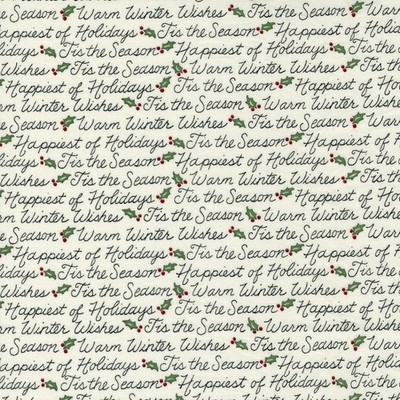 the Season Warm Winter Wishes 'Tis the Season
Happiest of Holidays 'Tis the Season Happiest of
'Tis the Season Happiest of Holidays
Wishes 'Tis the Season Warm Winter Wishes
Happiest of Holidays 'Tis the Season Happiest of
Winter Wishes 'Tis the Season Warm Winter Wishes
the Season Warm Winter Wishes 'Tis the Season
Happiest of Holidays 'Tis the Season Happiest of
'Tis the Season Happiest of Holidays
Wishes 'Tis the Season Warm Winter Wishes
Happiest of Holidays 'Tis the Season Happiest of
Winter Wishes 'Tis the Season Warm Winter Wishes
the Season Warm Winter Wishes 'Tis the Season
Happiest of Holidays 'Tis the Season Happiest of
'Tis the Season Happiest of Holidays
Wishes 'Tis the Season Warm Winter Wishes
Happiest of Holidays 'Tis the Season Happiest of
Winter Wishes 'Tis the Season Warm Winter Wishes
the Season Warm Winter Wishes 'Tis the Season
Happiest of Holidays 'Tis the Season Happiest of
'Tis the Season Happiest of Holidays